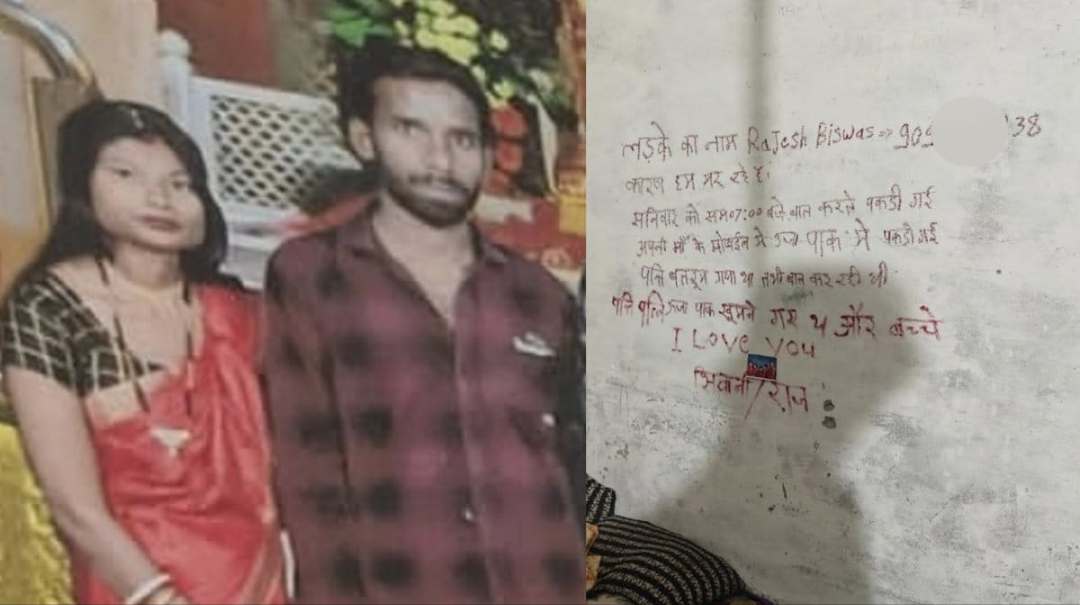 लड़के का नाम Rajesh Biswas => 909 38
कारण हम मर रहे हैं.
सनिवार को सम 07:00 बजे बात करते पकडी गई
अपनी माँ के मोबाईल से ऊर्जा पाक मे पकडी गई
पत्ति बतरूम गया था तभी बात कर रही थी.
पत्ति पत्नि ऊर्जा पाक घूमने गए थे और बच्चे
I Love You
शिवानी/राज